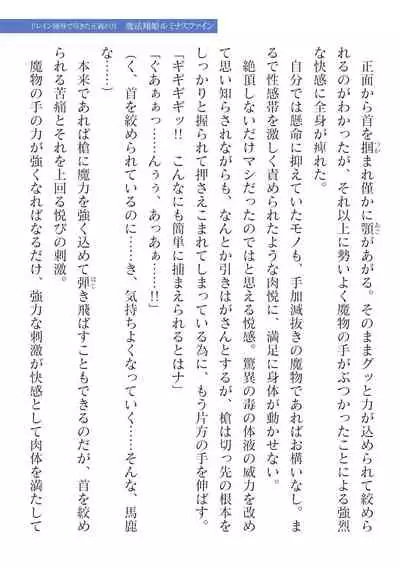 ドレイン地獄で尽きた正義の力　魔法翔姫ルミナスファイン
正面から首を掴まれ僅かに顎があがる。そのままグッと力が込められて絞めら
れるのがわかったが、それ以上に勢いよく魔物の手がぶつかったことによる強烈
な快感に全身が痺れた。
自分では懸命に抑えていたモノも、手加減抜きの魔物であればお構いなし。ま
るで性感帯を激しく責められたような肉悦に、満足に身体が動かせない。
絶頂しないだけマシだったのではと思える悦感。驚異の毒の体液の威力を改め
て思い知らされながらも、なんとか引きはがさんとするが、槍は切っ先の根本を
しっかりと握られて押さえこまれてしまっている為に、もう片方の手を伸ばす。
「ギギギギッ!!　こんなにも簡単に捕まえられるとはナ」
「ぐあぁぁっ……んぅぅ、あっあぁ……!!」
（く、首を絞められているのに……き、気持ちよくなっていく……そんな、馬鹿
な……）
本来であれば槍に魔力を強く込めて弾き飛ばすこともできるのだが、首を絞め
られる苦痛とそれを上回る悦びの刺激。
魔物の手の力が強くなればなるだけ、強力な刺激が快感として肉体を満たして